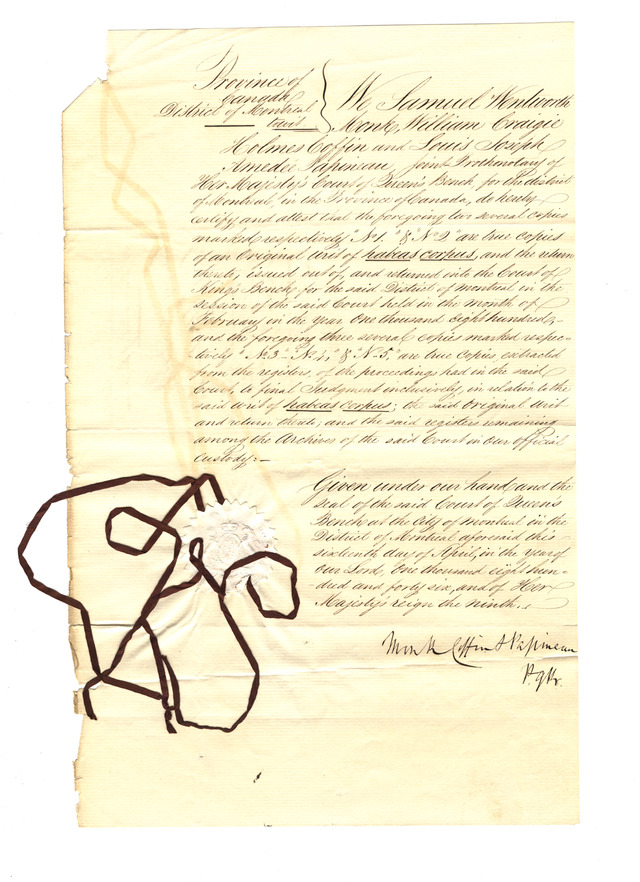 Province of
Canada
District of Montreal
to wit
We, Samuel Wentworth
Monk, William Craigie
Holmes Coffin and Louis Joseph
Amedée Papineau, joint Prothonotary of
Her Majesty's Court of Queen's Bench, for the district
of Montreal, in the Province of Canada, do hereby
certify and attest that the foregoing two several copies
marked respectively "No 1." & "No 2" are true copies
of an Original Writ of habeas corpus, and the return
thereto, issued out of, and returned into the Court of
King's Bench, for the said District of Montreal in the
session of the said Court held in the month of
February, in the year One thousand eight hundred,
and the foregoing three several copies marked respec-
tively "No 3 - No 4," & No 5," are true copies, extracted
from the registers, of the proceedings had in the said
Court, to final Judgment inclusively, in relation to the
said writ of habeas corpus; the said Original Writ
and return thereto; and the said registers remaining
among the Archives of the said Court in our official
custody:-
Given under our hand and the
seal of the said Court of Queen's
Bench at the City of Montreal in the
District of Montreal aforesaid this
sixteenth day of April, in the Year of
our Lord, One thousand eight hun-
dred and forty six, and of Her
Majesty's reign the ninth.
Monk Coffin & Papineau